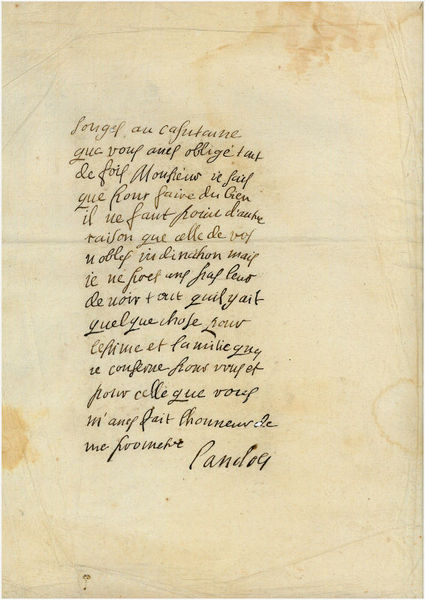 songes au capitaine
que vous aues obligé tant
de fois Monsieur ie scais
que pour faire du bien
il ne faut point d'autre
raison que celle de vos
nobles inclination mais
ie ne
de voir tout quil y ait
quelque chose pour
lestime et lamitie que
ie conserue pour vous et
pour celle que vous
m'aues fait lhonneur de
me prometre